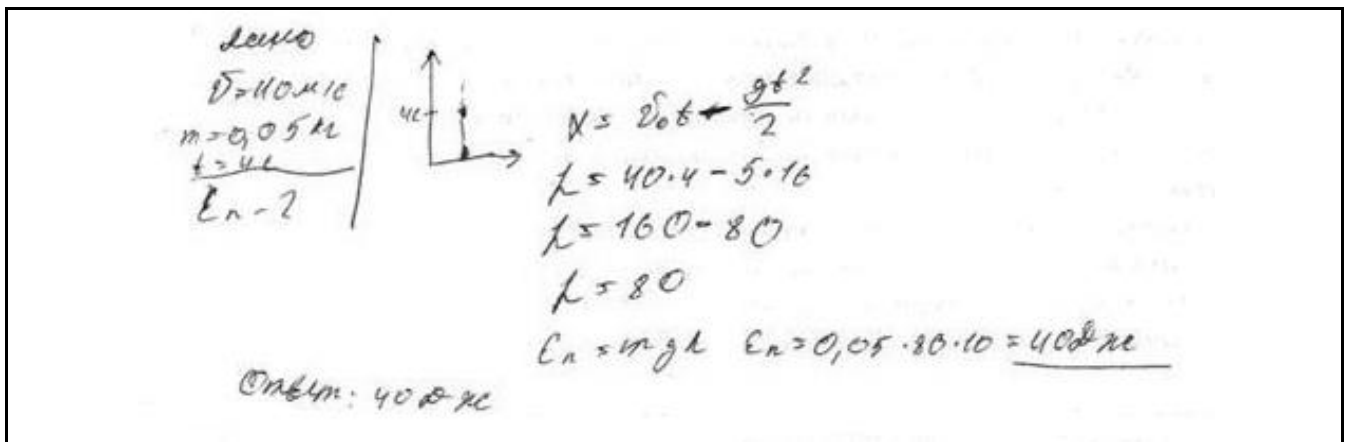 Дано
v = 40 м/с
m = 0,05 кг
t = 4 с
Eп - ?
4с
x = v₀t - gt²/2
h = 40·4 - 5·16
h = 160 - 80
h = 80
Eп = mgh Eп = 0,05·80·10 = 40 Дж
Ответ: 40 Дж